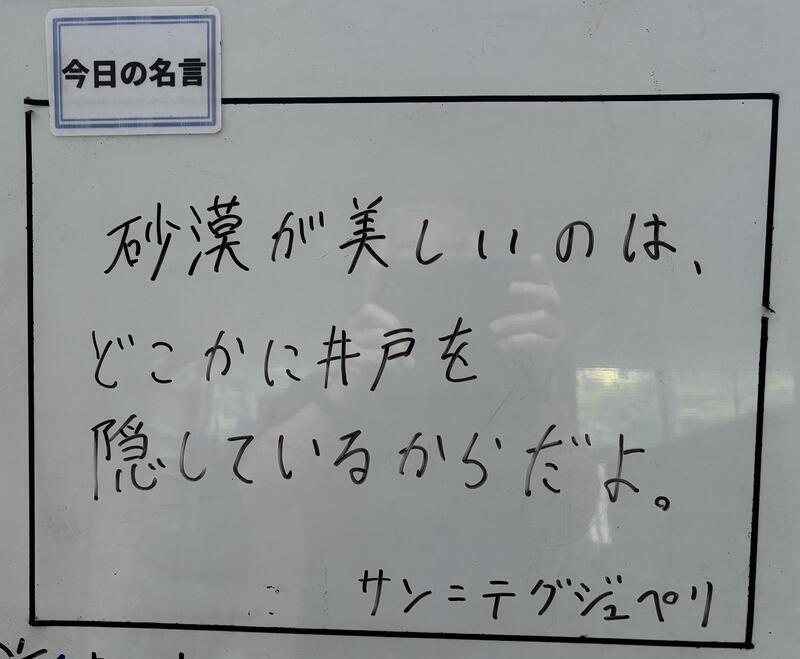 今日の名言
砂漠が美しいのは、
どこかに井戸を
隠しているからだよ。
サン=テグジュペリ